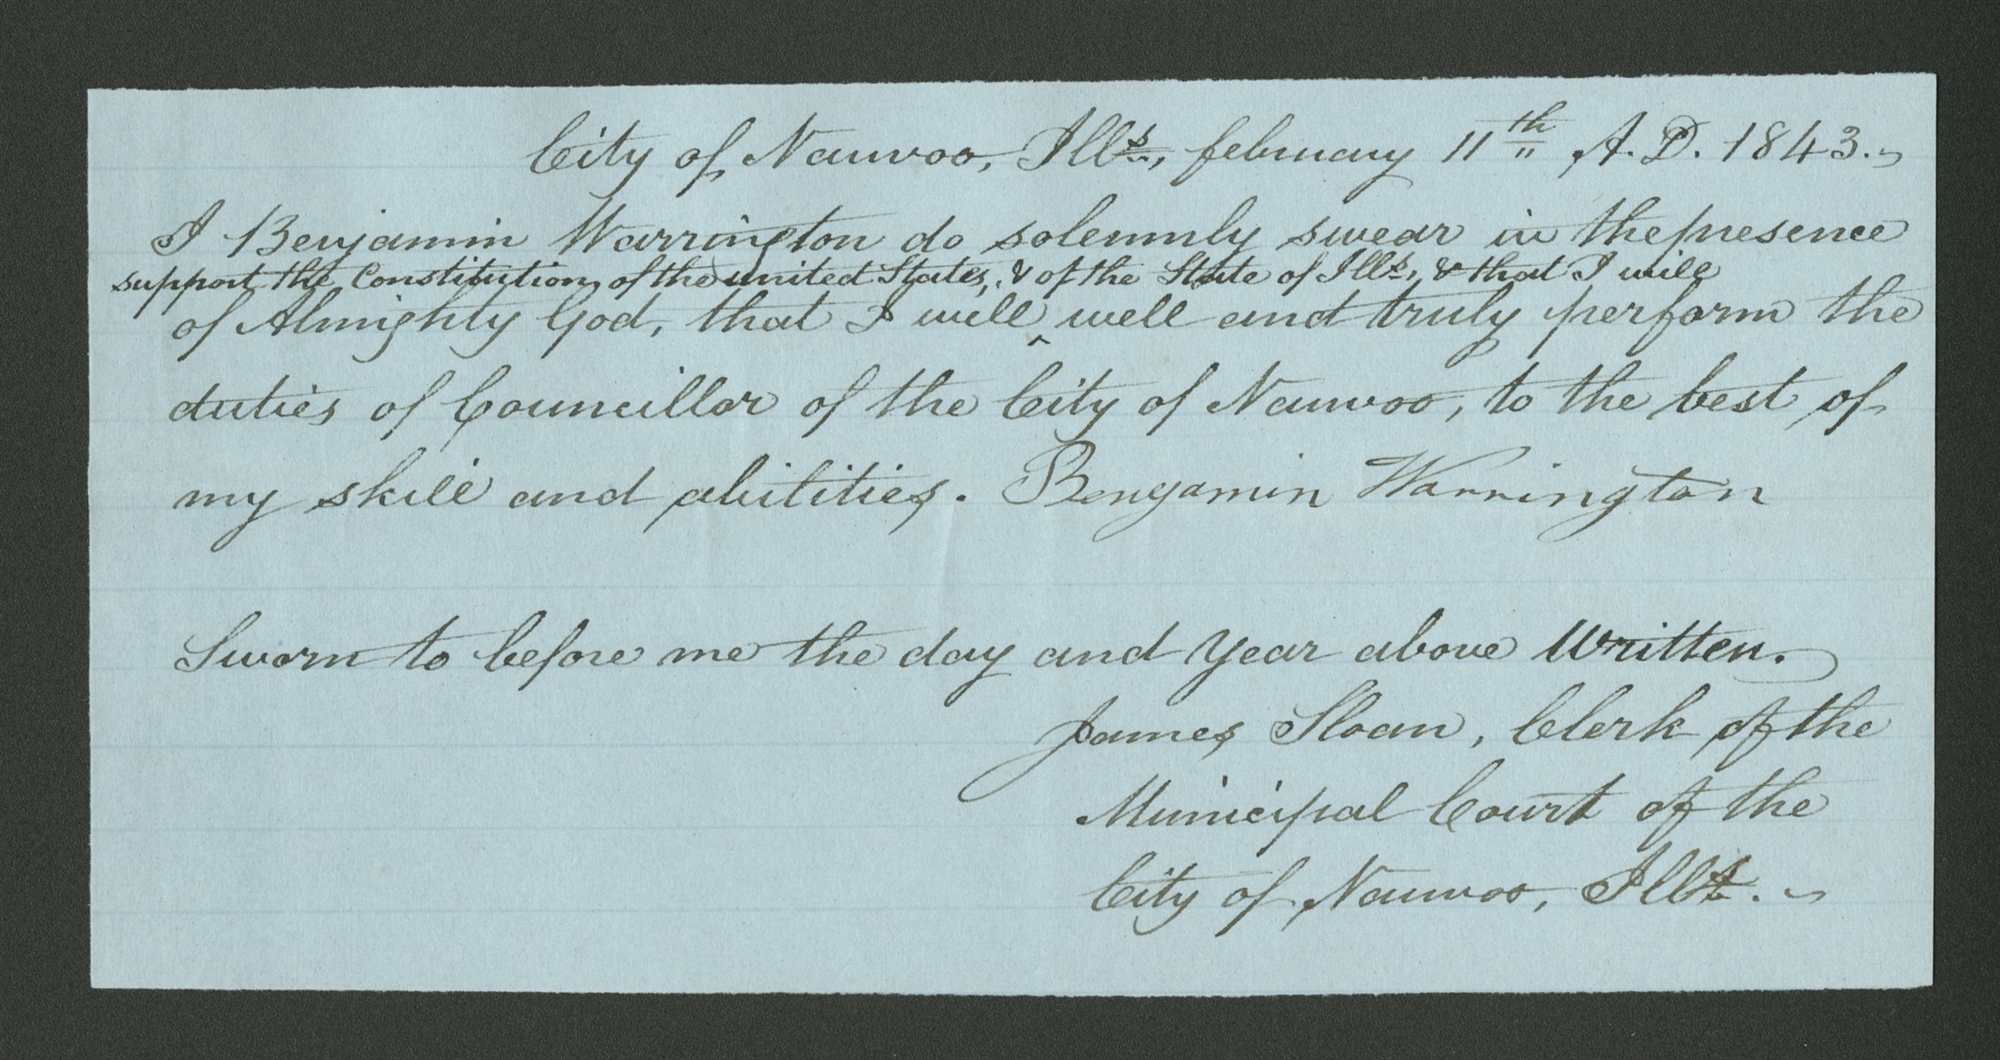 City of Nauvoo, Ills., february 11th A.D. 1843.
I Benjamin Warrington do solemnly swear in the presence
support the Constitution of the united States, & of the State of Ills, & that I will
of Almighty God, that I will ^ well and truly perform the
duties of Councillor of the City of Nauvoo, to the best of
my skill and abilities. Bengamin Warrington
Sworn to before me the day and year above Written.
James Sloan, Clerk of the
Municipal Court of the
City of Nauvoo, Ills.